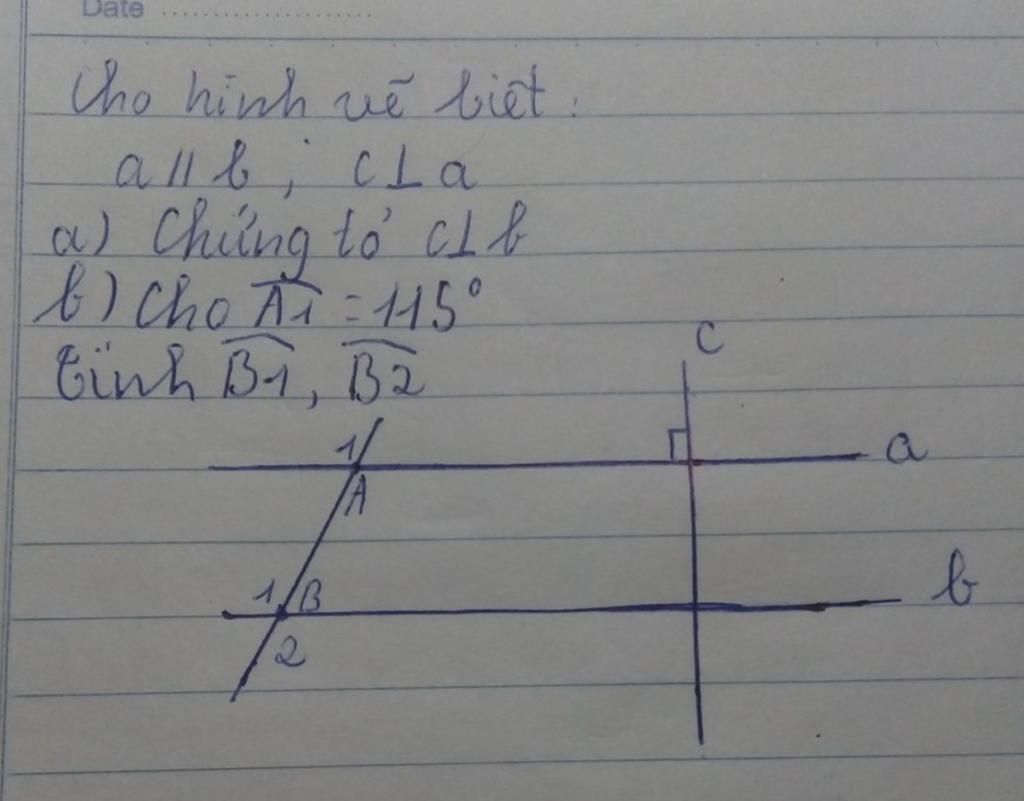 Date ........................
Cho hình vẽ biết:
a // b ; c⊥a
a) Chứng tỏ c⊥b
b) Cho A1 = 115°
tính B1, B2
c
1
a
A
1 B
b
2